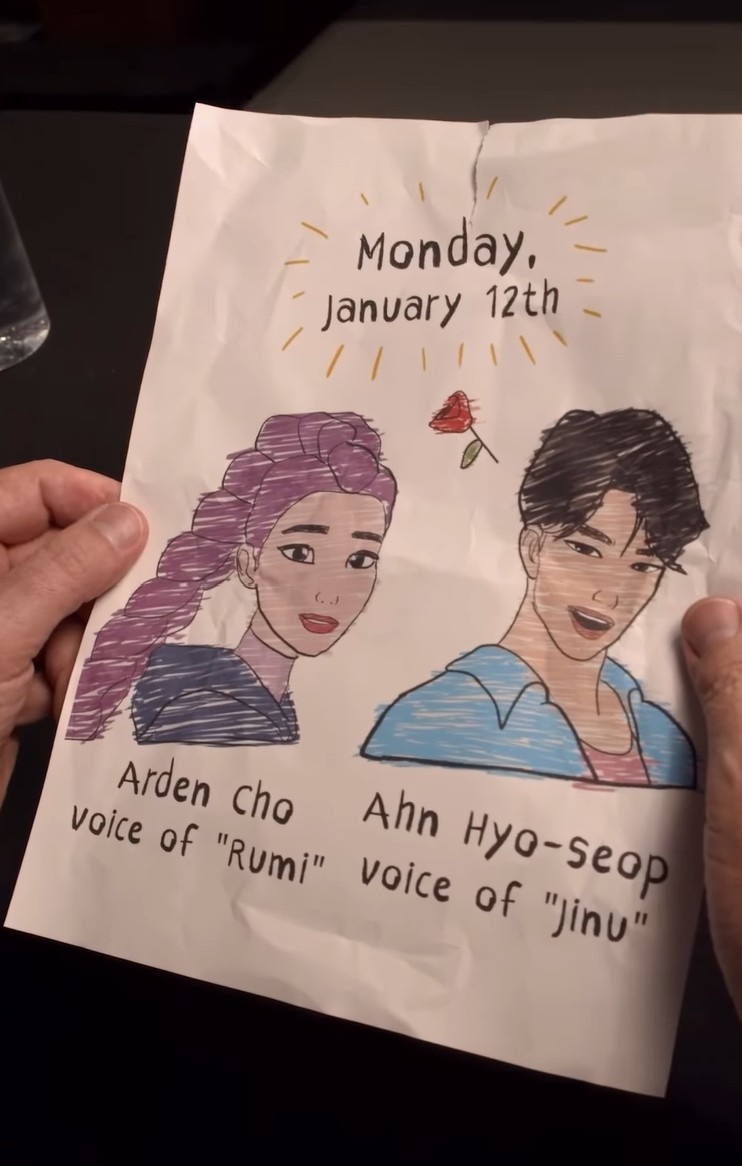 Monday,
January 12th
Arden Cho
voice of "Rumi"
Ahn Hyo-seop
voice of "Jinu"